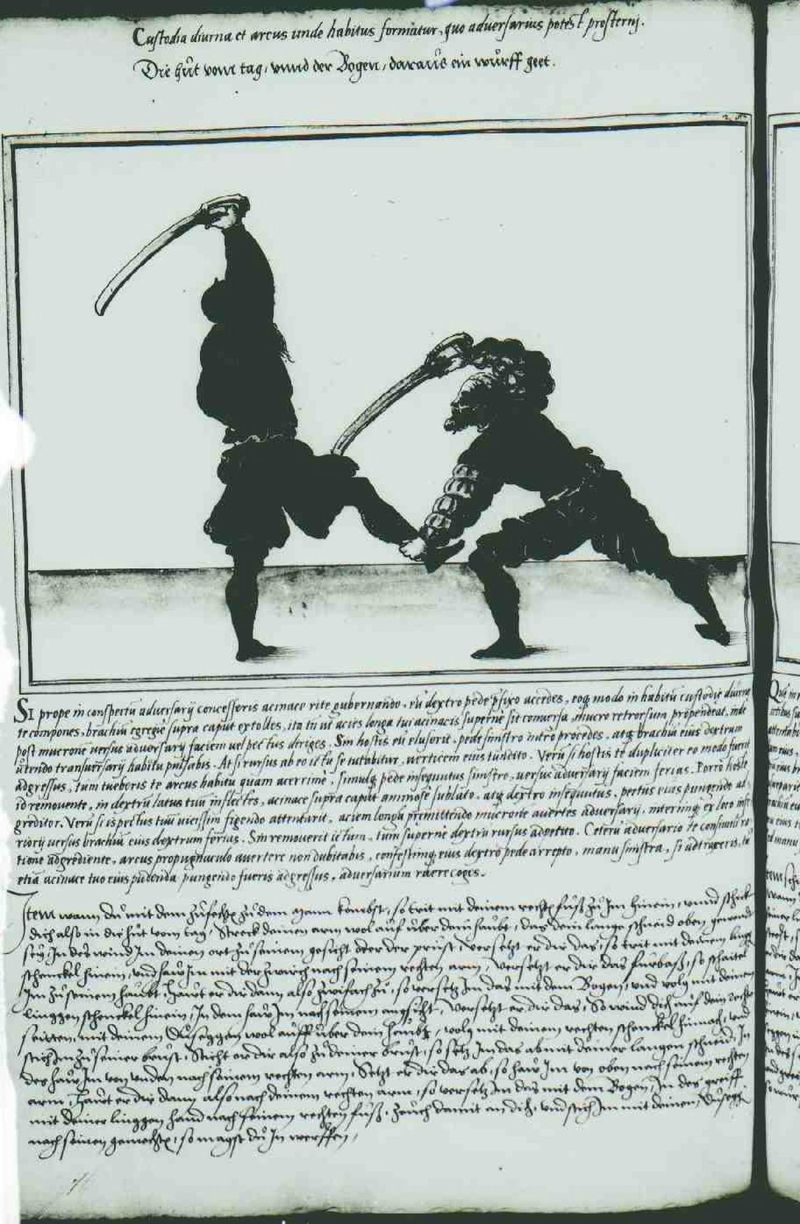 Custodia diurna et arcus unde habitus formatur, quo adversarius potest prosterni.
Die hůt vom tag, vnnd der Bogen, daraůs ein wůrff geet.
SI prope in conspectu adversarij concesseris acinace rite gubernando, tu dextro pede prefixo accedes, eoq modo in habitu custodie diurne
te compones, brachiu egregie supra caput extolles, ita ut acies longa tui acinacis superne sit conuersa, mucro retrorsum propendeat, inde
post mucrone versus adversarij faciem vel pectus diriges. Sin hostis eu eluserit, pede sinistro intro procedes, atq brachiu eius dextrum
utendo transversarij habitu pulsabis. At si rursus ab eo ictu se tutabitur, verticem eius tundito. Veru si hostis te dupliciter eo modo fuerit
adgressus, tum tueberis te arcus habitu quam acerrime, simulq pede insequutus sinistro, versus adversarij faciem ferias. Porro hoste
id removente, in dextru latus tuu inflectes, acinace supra caput animose sublato, atq dextro insequutus, pectus eius pungendo ad-
greditor. Veru si is pectus tuu vicissim figendo attentarit, aciem longa premittendo mucrone avertes adversarij, interimq ex loco infe-
riori versus brachiu eius dextrum ferias. Sin removerit ictum, tum superne dextru rursus adpetito. Ceteru adversario te consimili ra-
tione adgrediente, arcus propugnaculo avertere non dubitabis, confestimq eius dextro pede arrepto, manu sinistra, si adtraxeris, tu
etia acinace tuo eius pudenda pungendo fueris adgressus, adversarium
Item wann dů mit dem zůfechtn zů dem mann kombst, so trit mit deinem rechtn fůß zů Im hinein, vnnd schick
dich also in die hůt vom tag, Streck deinen arm wol auf über dein haubt, das dein lange schneid oben gewendt
seÿ, In des wind Im deinen ort zů seinem gesicht oder der průst, versetzt er dir das, so trit mit deinem linggen
schenckel hinein, vnd haw Im mit der zwirch nach seinem rechten arm, versetzt er dir das fürbaß, so schaitel
Im zů seinem haůbt, haůt er dir dann also zwifach zů, so versetz Im das mit dem Bogen, vnd volg mit deinem
linggen schenckel hinein, In dem haw Im nach seinem angsicht, versetzt er dir das, So wind dich auf dein rechte
seitten, mit deinem Důseggen wol aůff über dein haubt, volg mit deinem rechten schenckel hinnach, vnd
stich Im zů seiner brust, Sticht er dir also zů deiner brust, so setz Im das ab mit deiner langen schneid, In
des haw Im von vnden nach seinem rechten arm, Setzt er dir das ab, so haw Im von oben nach seinem rechten
arm, haůt er dir dann also nach deinem rechten arm, so versetz Im das mit dem Bogen, In des greiff
mit deiner linggen hand nach seinem rechten fůß, zeuch damit an dich, vnd stich Im mit deinem Důseggn
nach seinen gemechtn, so magst dů In werffen,